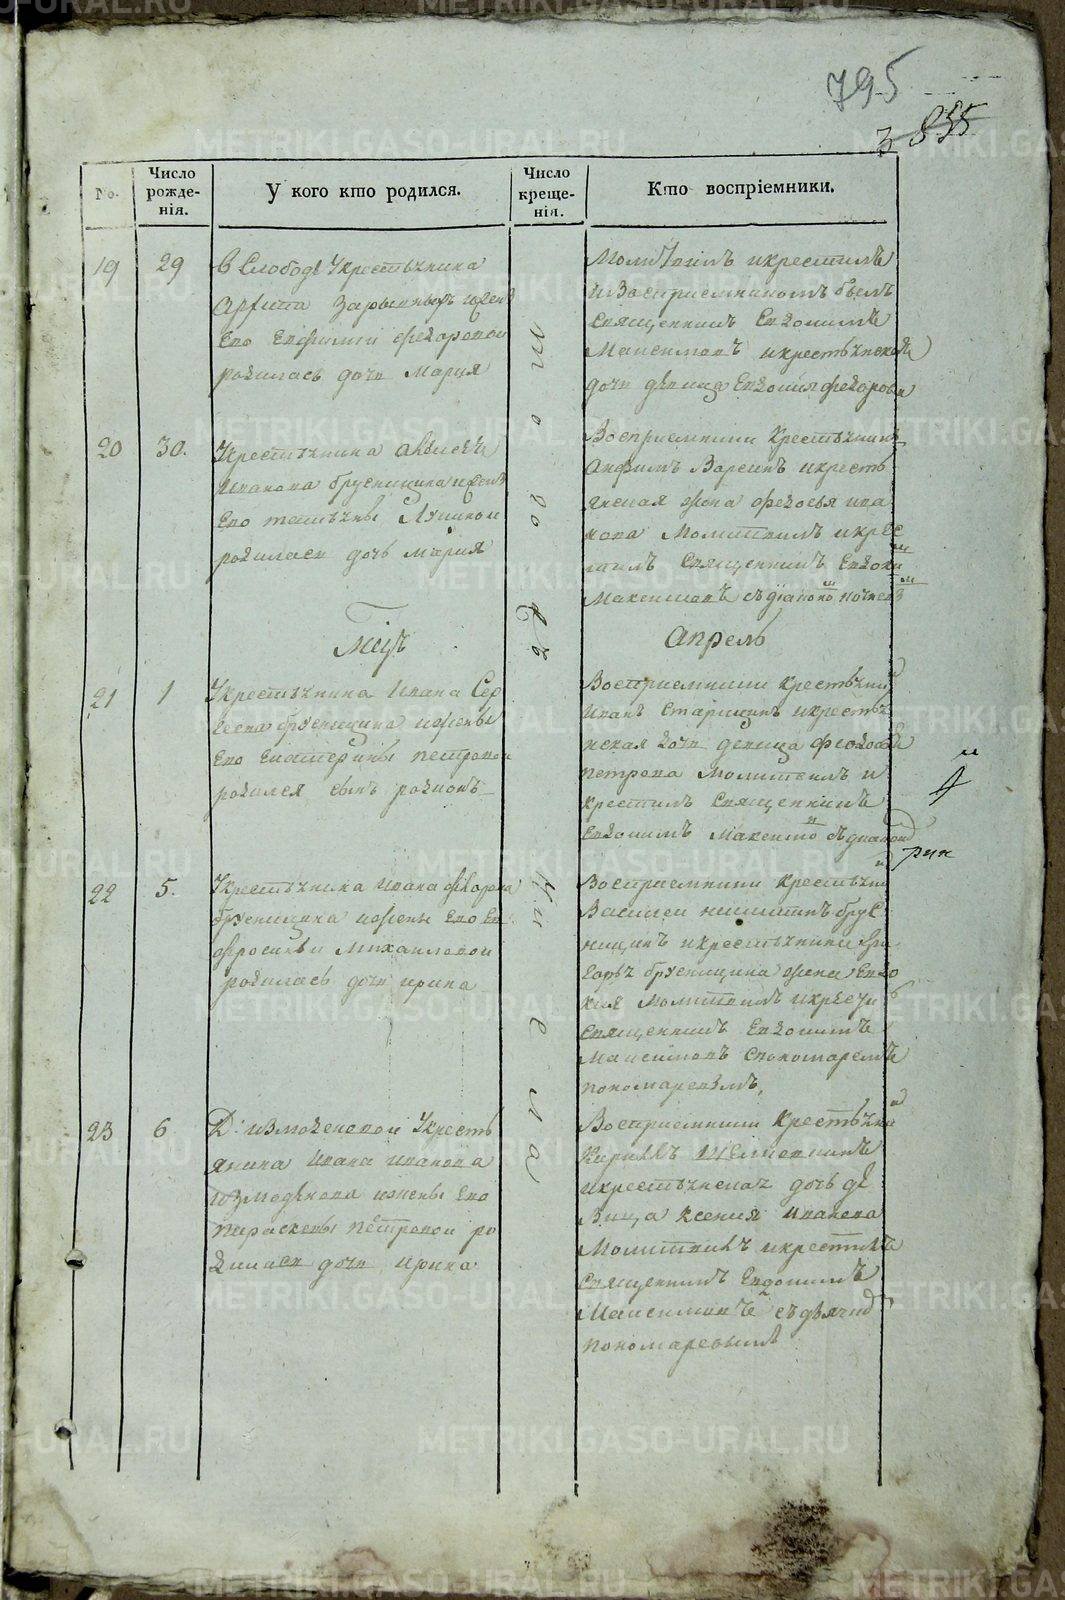 795
3 835
No.
Число рожде-нія.
У кого кто родился.
Число креще-нія.
Кто воспріемники.
19
29
В Слободе Укрестьянина
Зарывныхъ ижены
Его Евфимии Федоровой
родилась дочь Мария
Молитвилъ икрестилъ
и Восприемникомъ былъ
Священникъ Евдокимъ
Максимовъ икрестьянской
дочь девица Федорова
20
30.
Укрестьянина Алексея
Иванова брусницина ижены
Его татьяны
родилась дочь Мария
Восприемники Крестьянинъ
Анфимъ икресть
янская жона Федосья ива
нова Молитвилъ икрес
тилъ Священникъ Евдоки
Максимовъ съдіакономъ
Мсцъ
Апрель
21
1
Укрестьянина Ивана Сер
геева брусницина ижены
Его Екатерины петровой
родился сынъ родионъ
Восприемники крестьянинъ
Иванъ Старицинъ икрестья
нская дочь девица Феодосия
петрова Молитвилъ и
крестилъ Священникъ
Евдокимъ Максимо
22
5.
Укрестьянина Ивана Федорова
брусницина ижены Его Ев
фросиньи Михаиловой
родилась дочь ирина
Восприемники Крестьянинъ
Василеи никитинъ брус
ницинъ икрестьянина Гри
горья брусницина жена Евдо
кия Молитвилъ икрестилъ
Священникъ Евдокимъ
Максимовъ Спономаремъ
пономаревымъ,
23
6
Д: измоденовой Укресть
янина Ивана Иванова
измоденова ижены Его
параскевы петровой ро
дилася дочь ирина
Восприемники Крестьянинъ
икрестьянская дочь де
вица Ксения Иванова
Молитвилъ икрестилъ
Священникъ Евдокимъ
Максимовъ съдьячкомъ
пономаревымъ
тогоже числа
METRIKI.GASO-URAL.RU